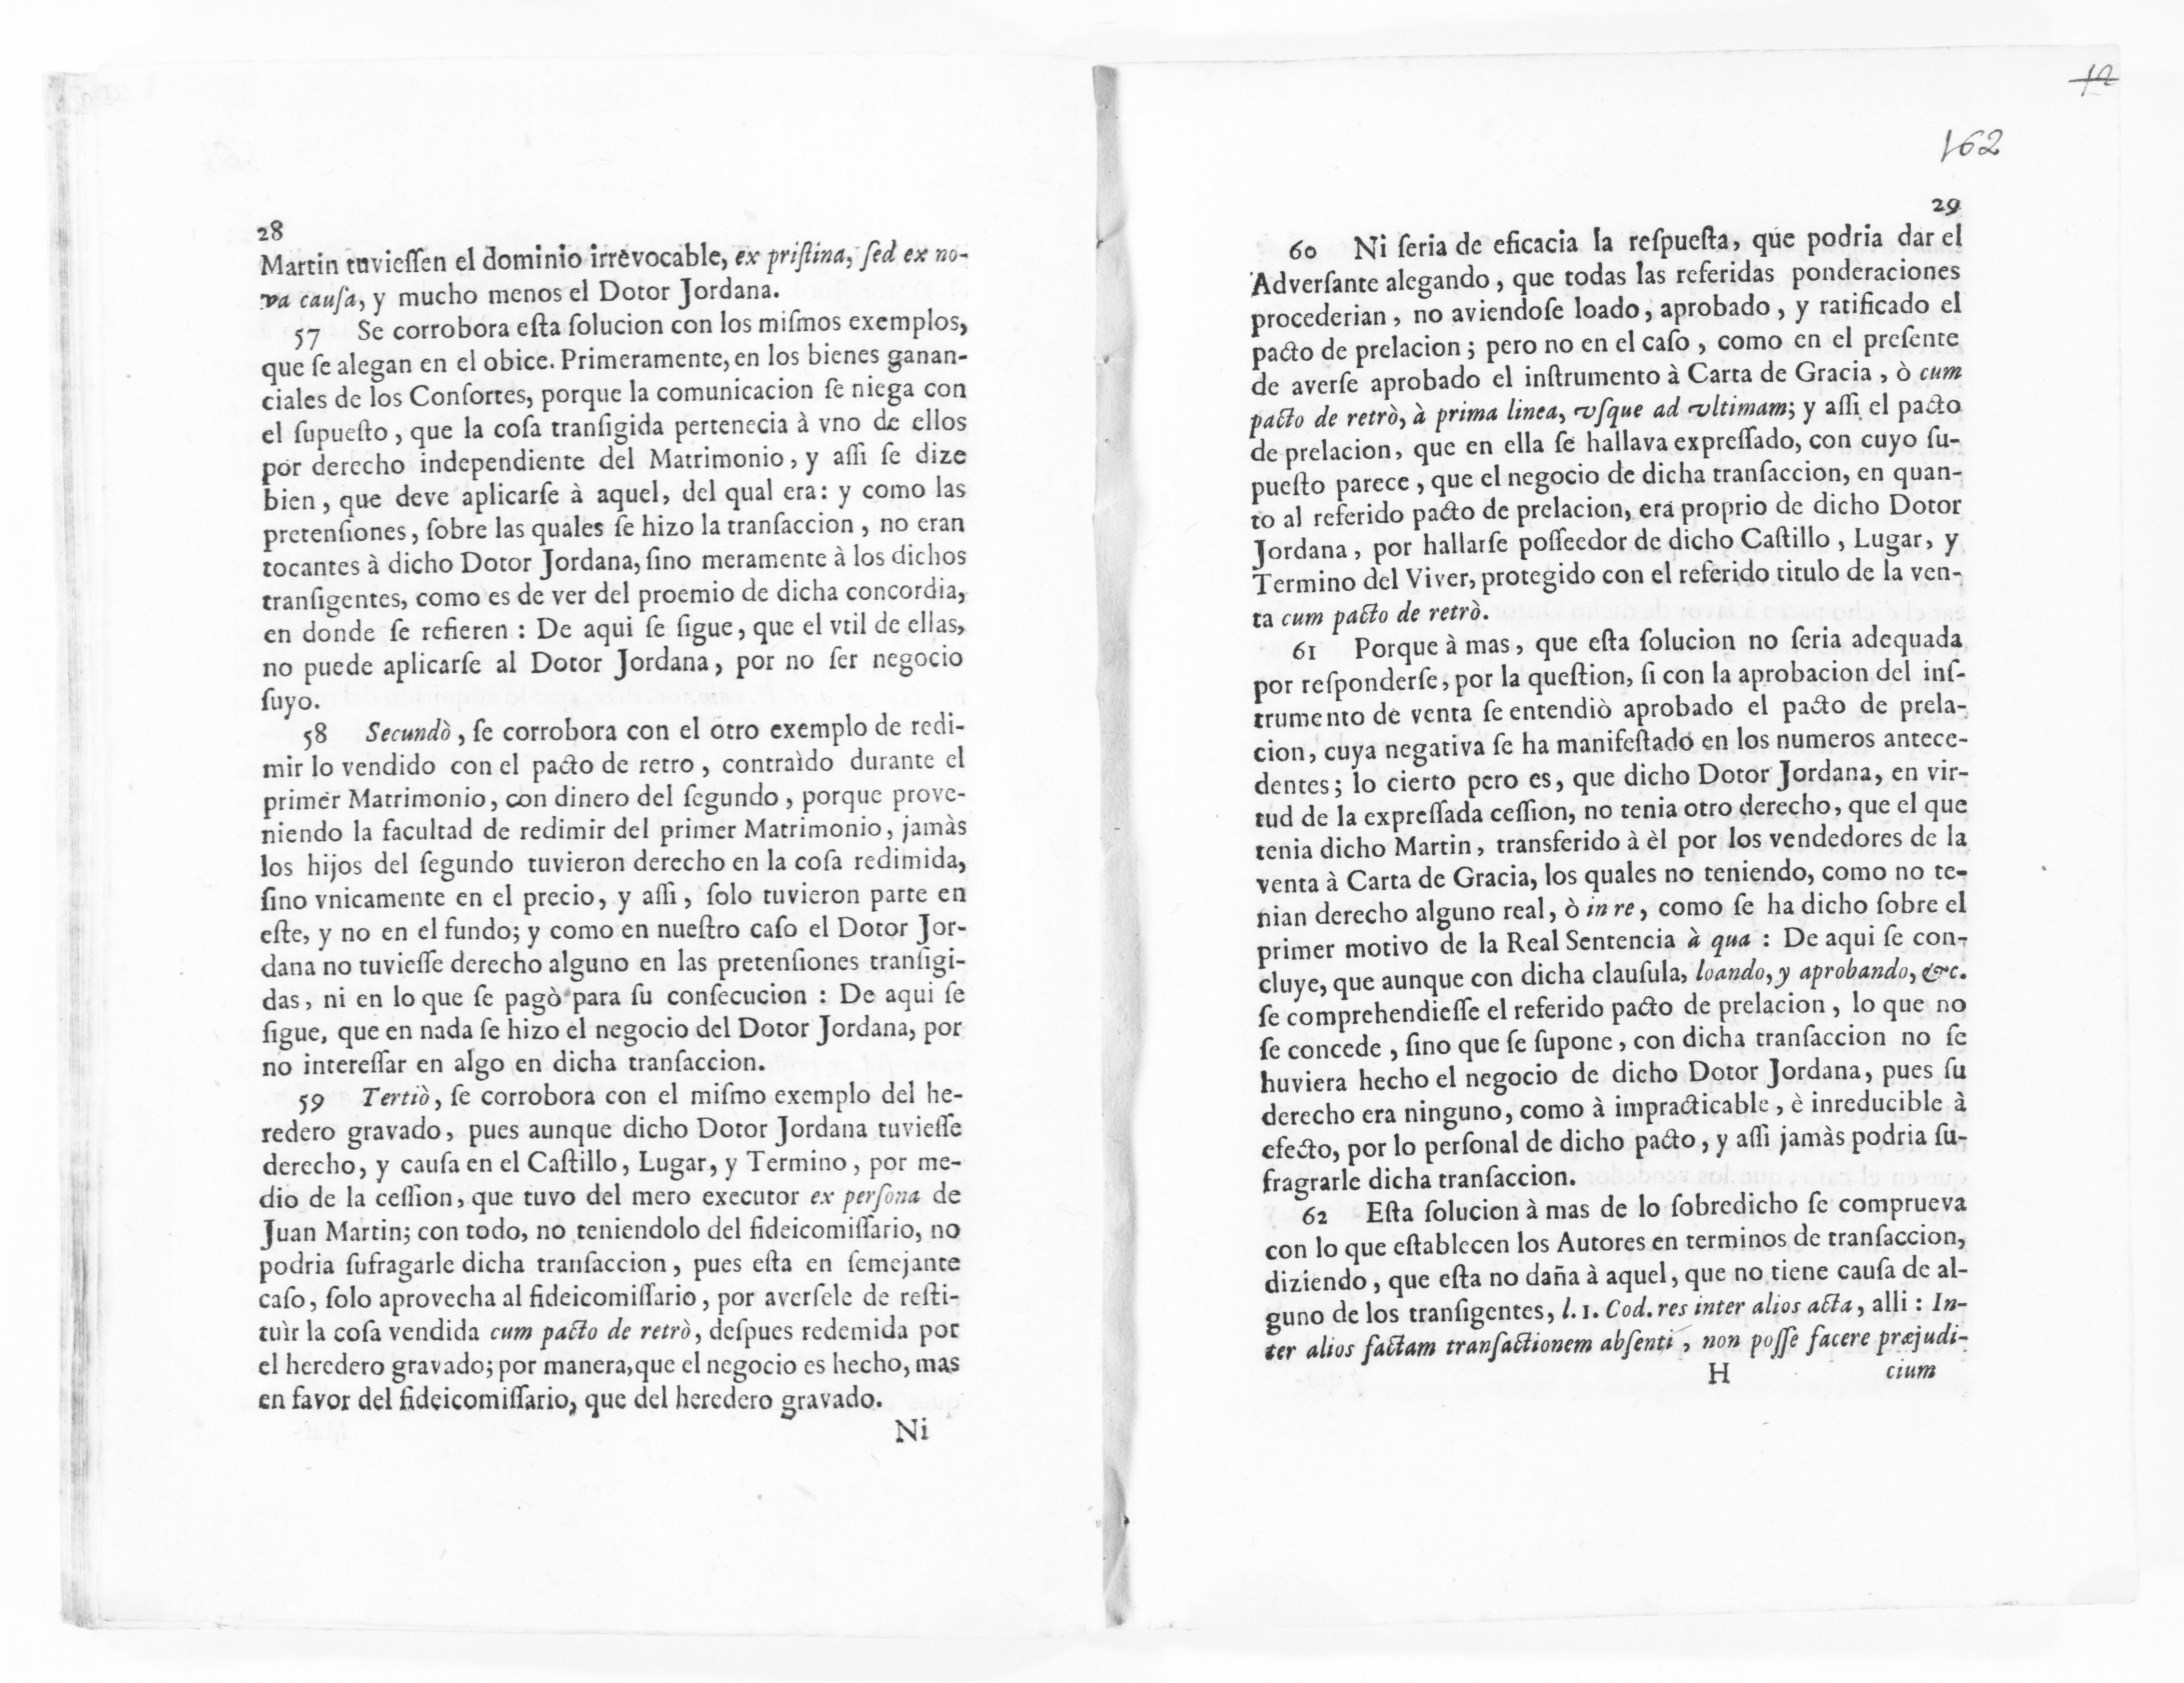 28
Martin tuvieſſen el dominio irrevocable, ex priſtina, ſed ex no-
va cauſa, y mucho menos el Dotor Jordana.
57 Se corrobora eſta ſolucion con los miſmos exemplos,
que ſe alegan en el obice. Primeramente, en los bienes ganan-
ciales de los Conſortes, porque la comunicacion ſe niega con
el ſupueſto, que la coſa tranſigida pertenecia à vno de ellos
por derecho independiente del Matrimonio, y aſſi ſe dize
bien, que deve aplicarſe à aquel, del qual era: y como las
pretenſiones, ſobre las quales ſe hizo la tranſaccion, no eran
tocantes à dicho Dotor Jordana, ſino meramente à los dichos
tranſigentes, como es de ver del proemio de dicha concordia,
en donde ſe refieren: De aqui ſe ſigue, que el vtil de ellas,
no puede aplicarſe al Dotor Jordana, por no ſer negocio
ſuyo.
58 Secundò, ſe corrobora con el otro exemplo de redi-
mir lo vendido con el pacto de retro, contraìdo durante el
primer Matrimonio, con dinero del ſegundo, porque prove-
niendo la facultad de redimir del primer Matrimonio, jamàs
los hijos del ſegundo tuvieron derecho en la coſa redimida,
ſino vnicamente en el precio, y aſſi, ſolo tuvieron parte en
eſte, y no en el fundo; y como en nueſtro caſo el Dotor Jor-
dana no tuvieſſe derecho alguno en las pretenſiones tranſigi-
das, ni en lo que ſe pagò para ſu conſecucion: De aqui ſe
ſigue, que en nada ſe hizo el negocio del Dotor Jordana, por
no intereſſar en algo en dicha tranſaccion.
59 Tertiò, ſe corrobora con el miſmo exemplo del he-
redero gravado, pues aunque dicho Dotor Jordana tuvieſſe
derecho, y cauſa en el Caſtillo, Lugar, y Termino, por me-
dio de la ceſſion, que tuvo del mero executor ex perſona de
Juan Martin; con todo, no teniendolo del fideicomiſſario, no
podria ſufragarle dicha tranſaccion, pues eſta en ſemejante
caſo, ſolo aprovecha al fideicomiſſario, por averſele de reſti-
tuìr la coſa vendida cum pacto de retrò, deſpues redemida por
el heredero gravado; por manera, que el negocio es hecho, mas
en favor del fideicomiſſario, que del heredero gravado.
Ni
12
162
29
60 Ni ſeria de eficacia la reſpueſta, que podria dar el
Adverſante alegando, que todas las referidas ponderaciones
procederian, no aviendoſe loado, aprobado, y ratificado el
pacto de prelacion; pero no en el caſo, como en el preſente
de averſe aprobado el inſtrumento à Carta de Gracia, ò cum
pacto de retrò, à prima linea, vſque ad vltimam; y aſſi el pacto
de prelacion, que en ella ſe hallava expreſſado, con cuyo ſu-
pueſto parece, que el negocio de dicha tranſaccion, en quan-
to al referido pacto de prelacion, era proprio de dicho Dotor
Jordana, por hallarſe poſſeedor de dicho Caſtillo, Lugar, y
Termino del Viver, protegido con el referido titulo de la ven-
ta cum pacto de retrò.
61 Porque à mas, que eſta ſolucion no ſeria adequada
por reſponderſe, por la queſtion, ſi con la aprobacion del inſ-
trumento de venta ſe entendiò aprobado el pacto de prela-
cion, cuya negativa ſe ha manifeſtado en los numeros antece-
dentes; lo cierto pero es, que dicho Dotor Jordana, en vir-
tud de la expreſſada ceſſion, no tenia otro derecho, que el que
tenia dicho Martin, transferido à èl por los vendedores de la
venta à Carta de Gracia, los quales no teniendo, como no te-
nian derecho alguno real, ò in re, como ſe ha dicho ſobre el
primer motivo de la Real Sentencia à qua: De aqui ſe con-
cluye, que aunque con dicha clauſula, loando, y aprobando, &c.
ſe comprehendieſſe el referido pacto de prelacion, lo que no
ſe concede, ſino que ſe ſupone, con dicha tranſaccion no ſe
huviera hecho el negocio de dicho Dotor Jordana, pues ſu
derecho era ninguno, como à impracticable, è inreducible à
efecto, por lo perſonal de dicho pacto, y aſſi jamàs podria ſu-
fragrarle dicha tranſaccion.
62 Eſta ſolucion à mas de lo ſobredicho ſe comprueva
con lo que eſtablecen los Autores en terminos de tranſaccion,
diziendo, que eſta no daña à aquel, que no tiene cauſa de al-
guno de los tranſigentes, l. 1. Cod. res inter alios acta, alli: In-
ter alios factam tranſactionem abſenti, non poſſe facere præjudi-
H cium